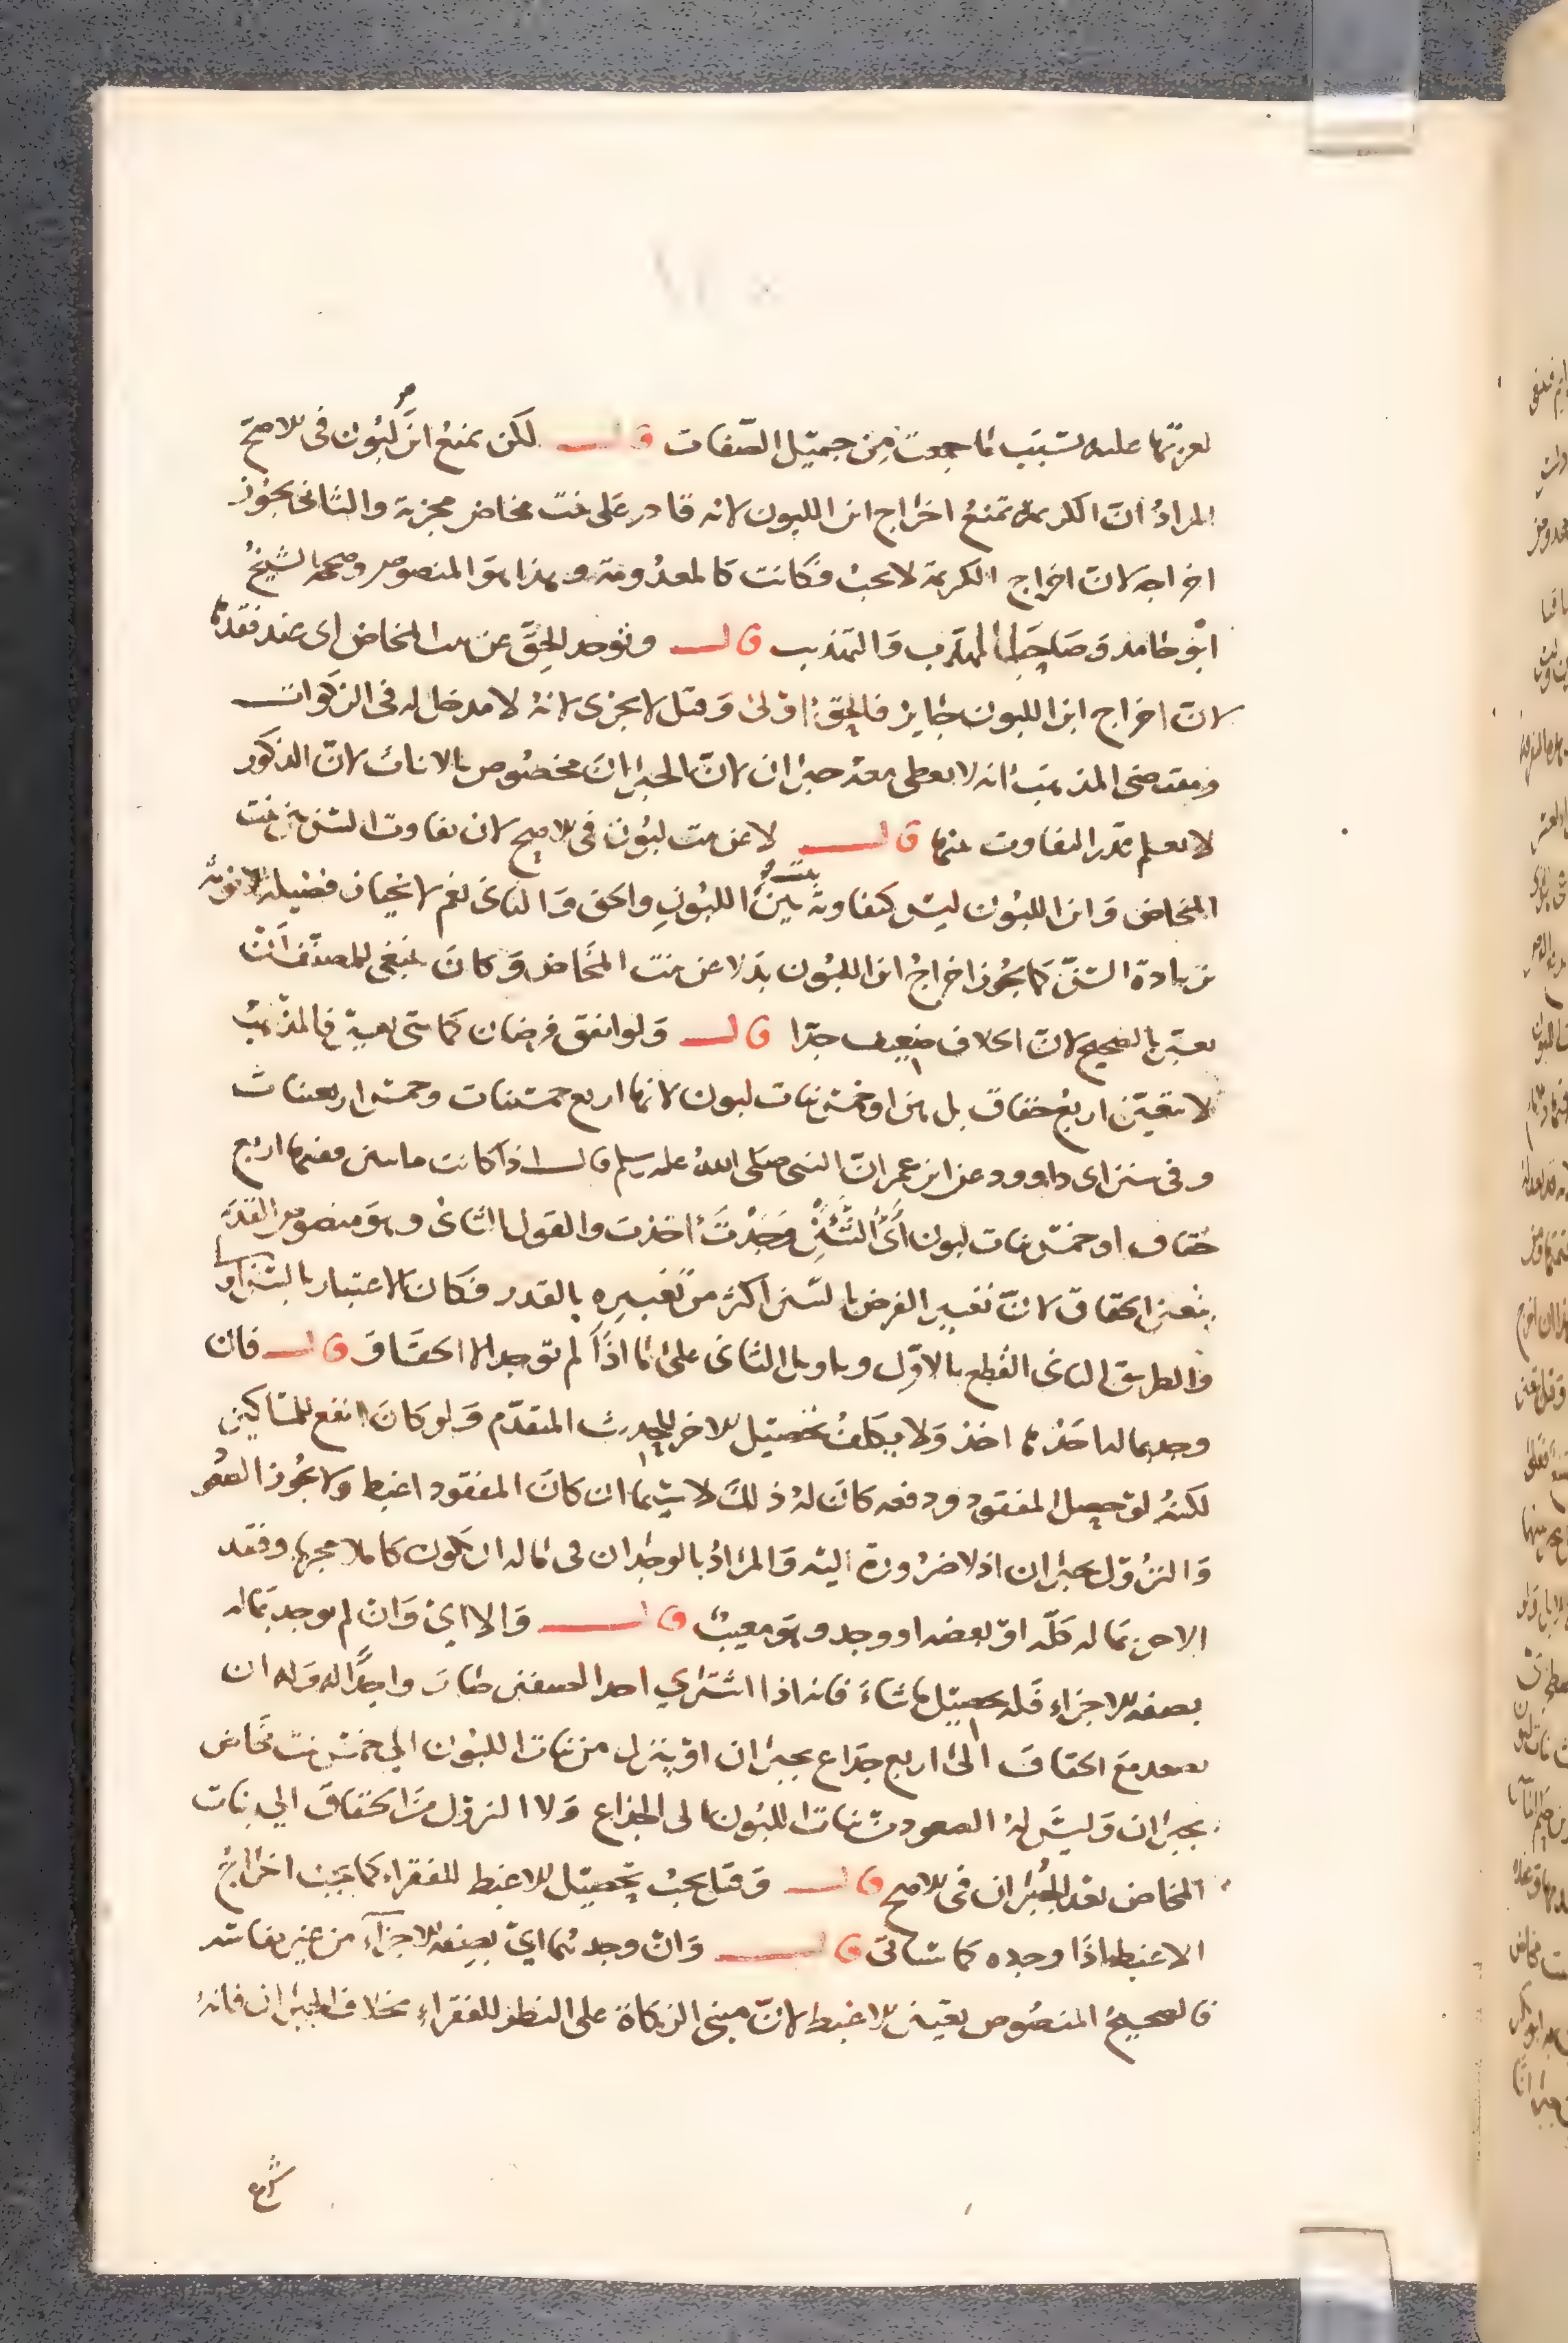 لعزتها عليه بسبب ما جمعت من جميل الصفات قال لكن تمنع ابن لبون في الاصح
المراد ان الكريمة تمنع اخراج ابن اللبون لانه قادر على بنت مخاض مجزية والثاني يجوز
اخراجه لان اخراج الكريمة لا يجب فكانت كالمعدومة وهذا هو المنصوص وصححه الشيخ
ابو حامد وصاحبا المهذب والتهذيب قال ويؤخذ الحق عن بنت المخاض اي عند فقدها
لان اخراج ابن اللبون جايز فالحق اولى وقيل لا يجزي لانه لا مدخل له في الزكوات
ومقتضى المذهب انه لا يعطى معه جبران لان الجبران مخصوص بالاناث لان الذكور
لا يعلم قدر التفاوت عنها قال لا عن بنت لبون في الاصح لان تفاوت السن بين بنت
المخاض وابن اللبون ليس كتفاوته بين بنت اللبون والحق والثاني نعم لانجبار فضيلة الانوثة
بزيادة السن كما يجوز اخراج ابن اللبون بدلا عن بنت المخاض وكان ينبغي للمصنف ان
يعبر بالصحيح لان الخلاف ضعيف جدا قال ولو اتفق فرضان كمائتي بعير فالمذهب
لا يتعين اربع حقاق بل هن او خمس بنات لبون لانها اربع خمسينات وخمس اربعينات
وفي سنن ابي داوود عن ابن عمر ان النبي صلى الله عليه وسلم قال اذا كانت مايتين ففيها اربع
حقاق او خمس بنات لبون اي السنين وجدت اخذت والقول الثاني وهو منصوص القديم
يتعين الحقاق لان تغيير الفرض بالسن اكثر من تغييره بالقدر فكان الاعتبار بالسن اولى
والطريق الثاني القطع بالاول وتاويل الثاني على ما اذا لم توجد الا الحقاق قال فان
وجد بماله احدهما اخذ ولا يكلف تحصيل الاخر للحديث المتقدم ولو كان انفع للمساكين
لكنه لو حصل المفقود ودفعه كان له ذلك لا سيما ان كان المفقود اغبط ولا يجوز الصعود
والنزول بجبران اذ لا ضرورة اليه والمراد بالوجدان في ماله ان يكون كاملا مجزيا وفقد
الاخر بماله كله او بعضه او وجد وهو معيب قال والا اي وان لم يوجد بماله
بصفة الاجزاء فله تحصيل ما شاء فانه اذا اشتري احد الصنفين صار واجدا له وله ان
يصعد مع الحقاق الى اربع جذاع بجبران او ينزل من بنات اللبون الي خمس بنت مخاض
بجبران وليس له الصعود من بنات اللبون الى الجذاع ولا النزول من الحقاق الي بنات
المخاض بعد الجبران في الاصح قال وقيل يجب تحصيل الاغبط للفقراء كما يجب اخراج
الاغبط اذا وجده كما سيأتي قال وان وجدهما اي بصفة الاجزاء من غير نفاسة
فالصحيح المنصوص تعين الاغبط لان مبنى الزكاة على النظر للفقراء بخلاف الجبران فانه